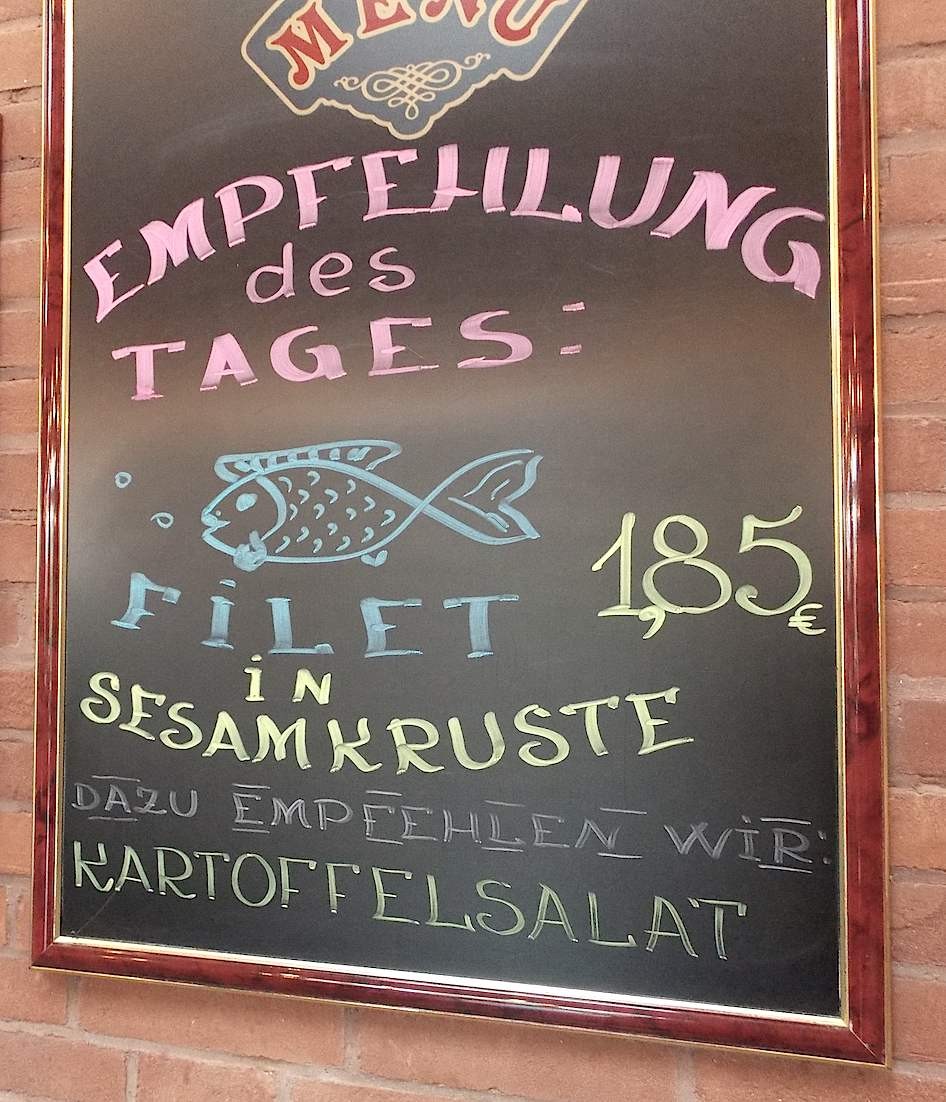 MENU
EMPFEHLUNG
des
TAGES:
FiLET 1,85€
iN
SESAMKRUSTE
DAZU EMPFEHLEN WiR:
KARTOFFELSALAT